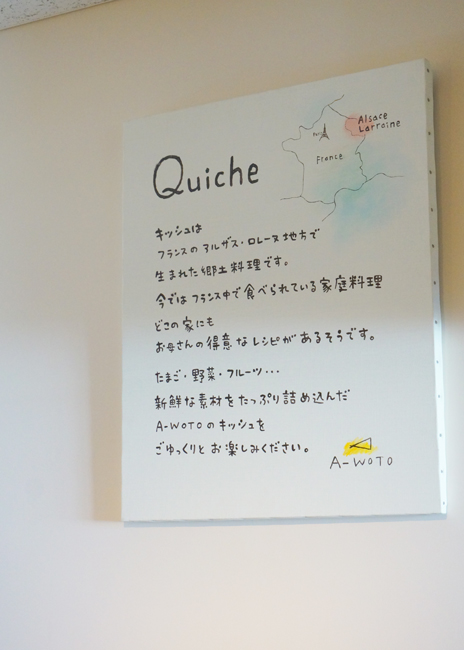 Alsace
Lorraine
Paris
France
Quiche
キッシュは
フランスのアルザス・ロレーヌ地方で
生まれた郷土料理です。
今ではフランス中で食べられている家庭料理
どこの家にも
お母さんの得意なレシピがあるそうです。
たまご・野菜・フルーツ・・・
新鮮な素材をたっぷり詰め込んだ
A-WOTOのキッシュを
ごゆっくりとお楽しみください。
A-WOTO